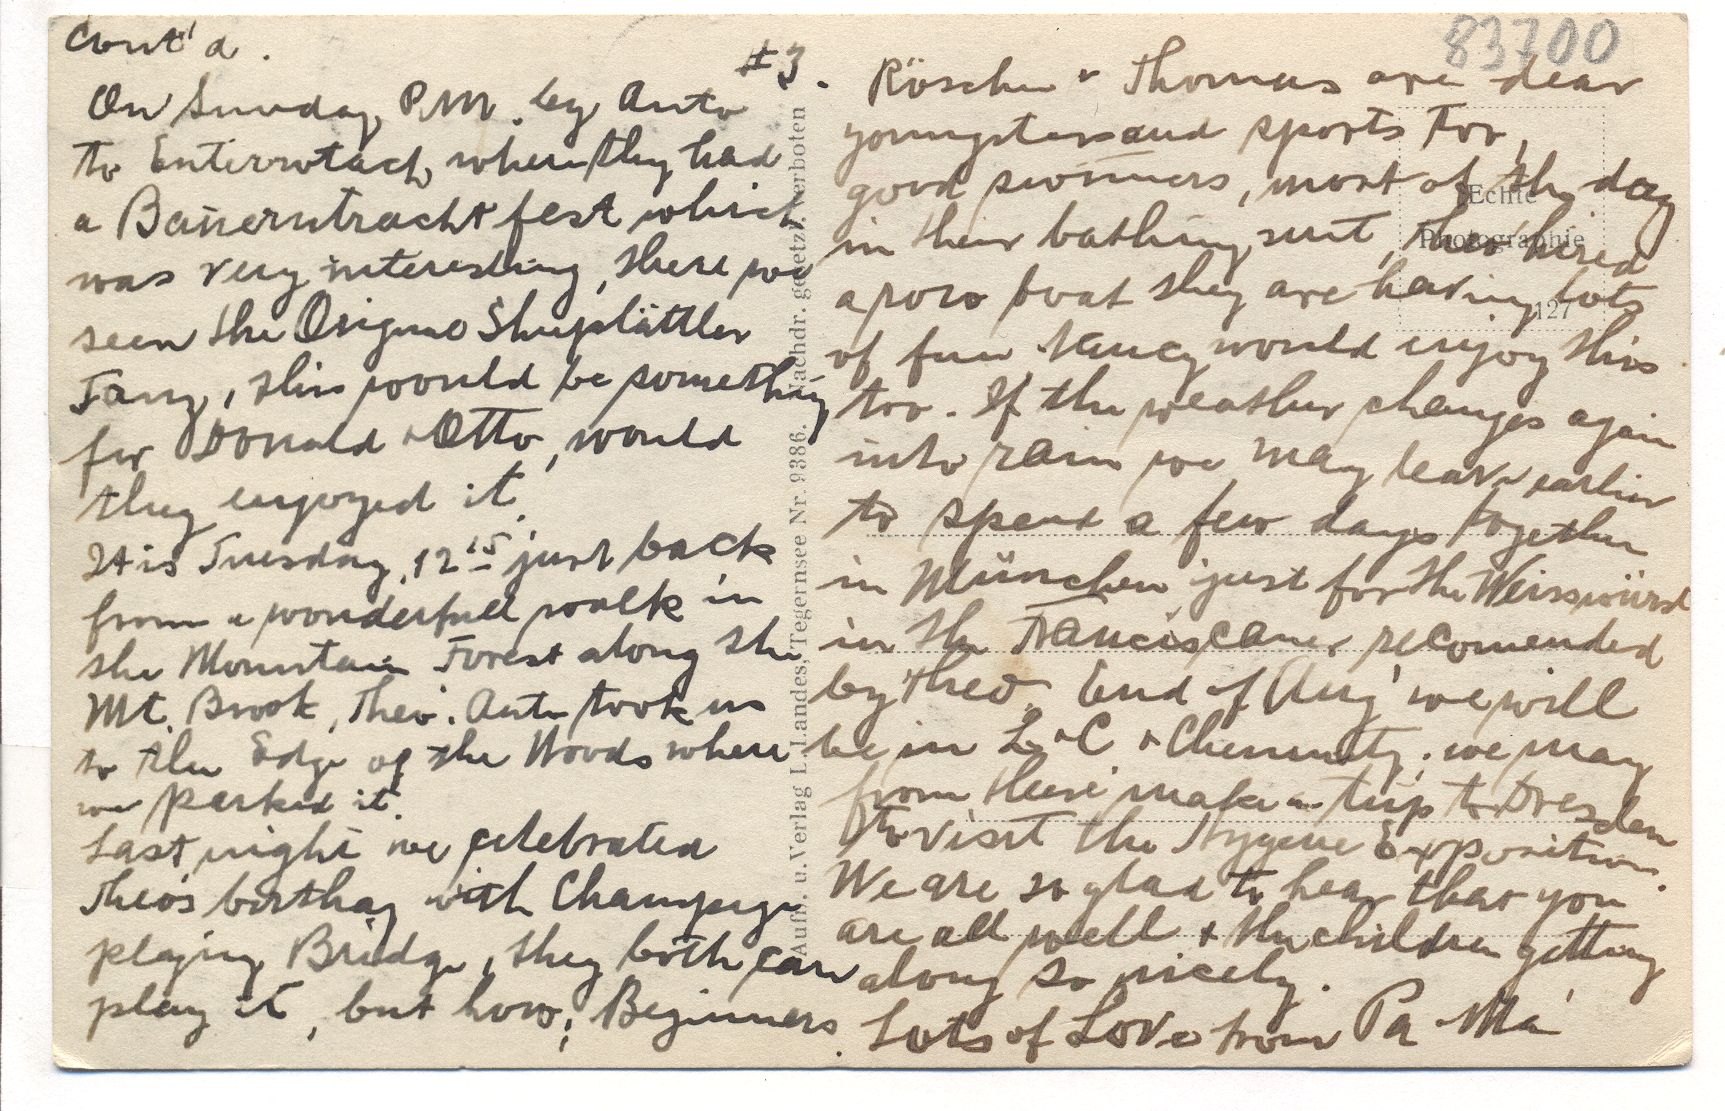 Cont'd.
#3.
On Sunday P.M. by Auto
to Enterrotach where they had
a Bauerntrachtfest which
was very interesting, there we
seen the Original Shuplättler
Tanz, this would be something
for Donald + Otto, would
they enjoyed it.
It is Tuesday, 12 15 just back
from a wonderfull walk in
the Mountain Forest along the
Mt. Brook, Theo. Auto took us
to the Edge of the Woods where
we parked it.
Last night we celebrated
Theo's birthay with Champagn
playing Bridge, they both can
play it, but how, Beginners.
83700
Röschen + Thomas are dear
youngsters and sports too,
good swimmers, most of the day
in their bathing suit, they hired
a row boat they are having lots
of fun, Nancy would enjoy this
too. If the weather changes again
into rain we may leave earlier
to spend a few days together
in München just for the Weisswürst
in the Franciscaner recomended
by Theo. End of Aug' we will
be in L + C + Chemnitz, we may
from there make a trip to Dresden
to visit the Hygene Exposition.
We are so glad to hear that you
are all well + the children getting
along so nicely.
Lots of Love from Pa Ma
Echte
Photographie
127
Aufn. u. Verlag L. Landes, Tegernsee Nr. 9386. Nachdr. gesetzl. verboten